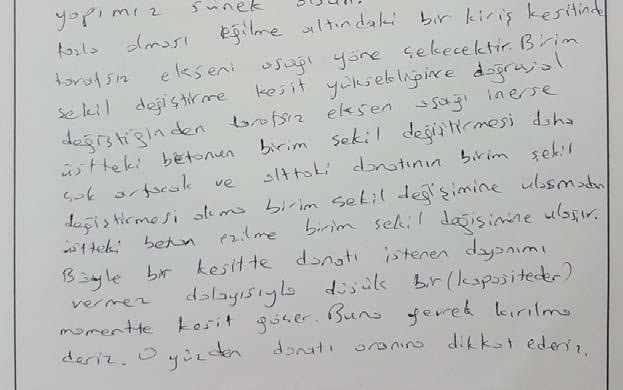 yapımız sünek olsun.
fazla olması eğilme altındaki bir kiriş kesitinde
tarafsız ekseni aşağı yöne çekecektir. Birim
şekil değiştirme kesit yüksekliğince doğrusal
değiştiğinden tarafsız eksen aşağı inerse
üstteki betonun birim şekil değiştirmesi daha
çok artacak ve alttaki donatının birim şekil
değiştirmesi akma birim şekil değişimine ulaşmadan
üstteki beton ezilme birim şekil değişimine ulaşır.
Böyle bir kesitte donatı istenen dayanımı
vermez dolayısıyla düşük bir (kapasiteden)
momentte kesit göçer. Buna gevrek kırılma
deriz. O yüzden donatı oranına dikkat ederiz.